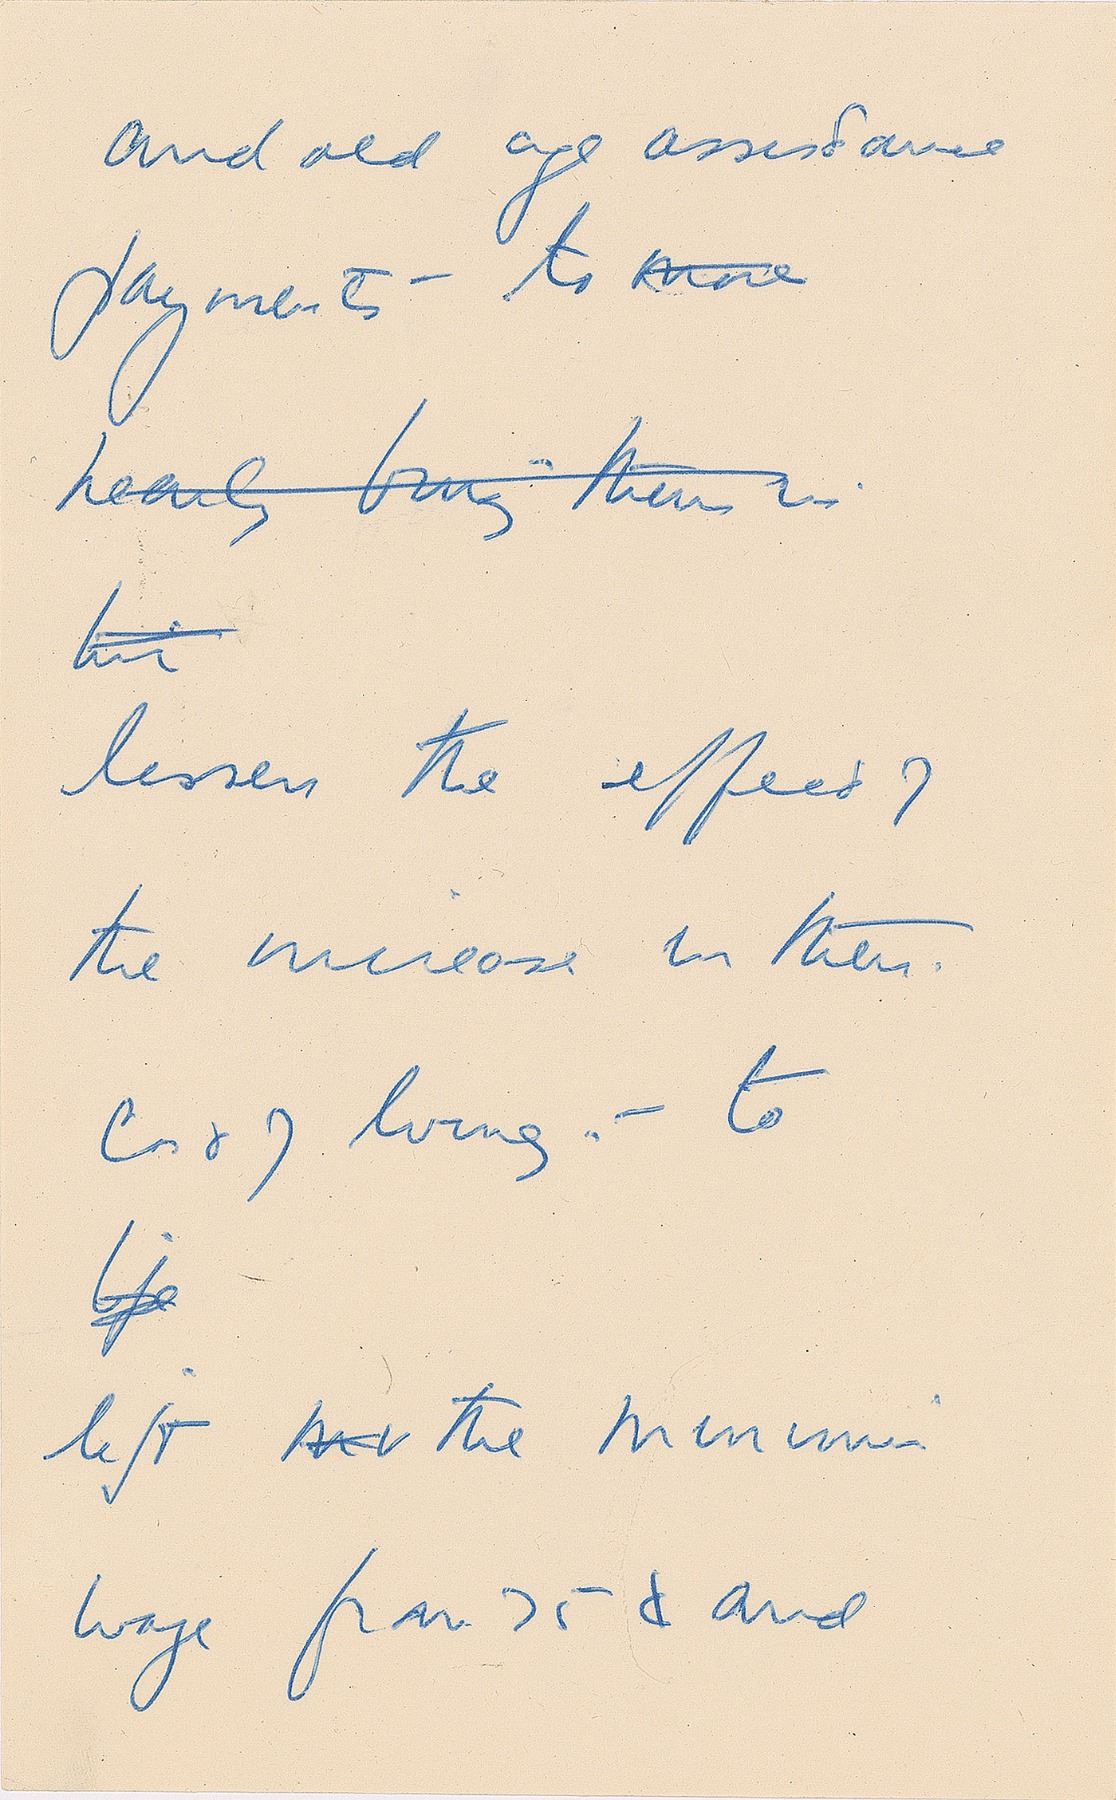 and old age assistance
payments – to more
nearly bring them in
lessen the effect of
the increase in their
cost of living. – to
life
lift the minimum
wage from 75 ¢ and